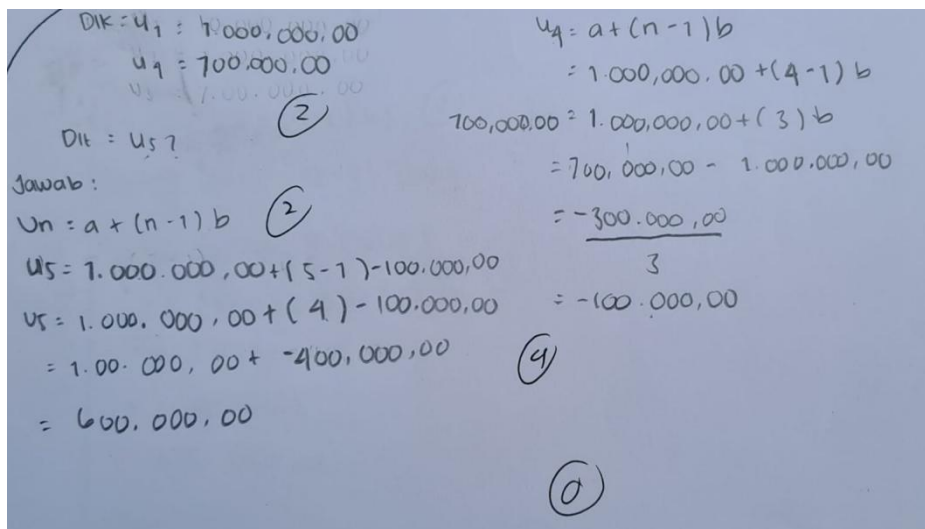 Dik : u1 : 1.000.000.00
u4 = 700.000.00
(2)
Dit = u5?
Jawab :
Un = a + (n-1) b (2)
u5 = 1.000.000,00 + (5-1) -100.000,00
u5 = 1.000.000,00 + (4) -100.000,00
= 1.00.000,00 + -400,000,00
= 600.000,00
u4 = a + (n-1) b
= 1.000,000.00 + (4-1) b
700,000.00 = 1.000,000,00 + (3) b
= 700,000,00 - 1.000.000,00
= -300.000,00
3
= -100.000,00
(4)
(0)